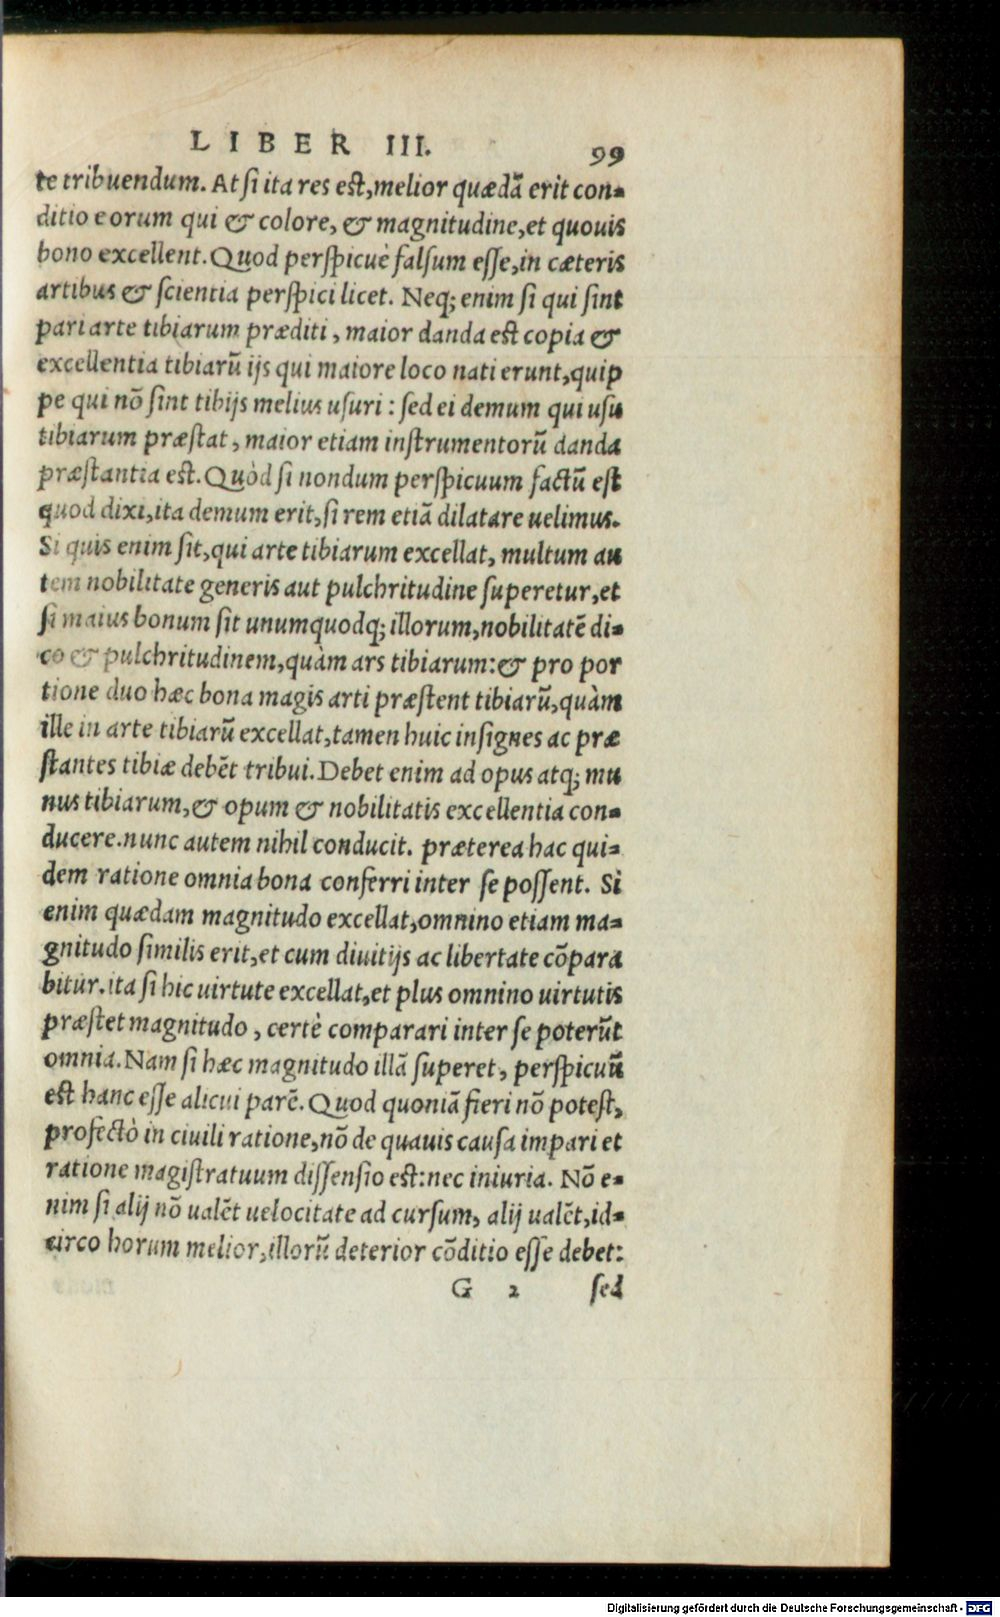 LIBER III. 99
te tribuendum. At si ita res est, melior quædã erit con-
ditio eorum qui & colore, & magnitudine, et quouis
bono excellent. Quod perspicuè falsum esse, in cæteris
artibus & scientia perspici licet. Neq; enim si qui sint
pari arte tibiarum præditi, maior danda est copia &
excellentia tibiarũ ijs qui maiore loco nati erunt, quip
pe qui nõ sint tibijs melius usuri: sed ei demum qui usu
tibiarum præstat, maior etiam instrumentorũ danda
præstantia est. Quòd si nondum perspicuum factũ est
quod dixi, ita demum erit, si rem etiã dilatare uelimus.
Si quis enim sit, qui arte tibiarum excellat, multum au
tem nobilitate generis aut pulchritudine superetur, et
si maius bonum sit unumquodq; illorum, nobilitatẽ di-
co & pulchritudinem, quàm ars tibiarum: & pro por
tione duo hæc bona magis arti præstent tibiarũ, quàm
ille in arte tibiarũ excellat, tamen huic insignes ac præ
stantes tibiæ debẽt tribui. Debet enim ad opus atq; mu
nus tibiarum, & opum & nobilitatis excellentia con-
ducere. nunc autem nihil conducit. præterea hac qui-
dem ratione omnia bona conferri inter se possent. Si
enim quædam magnitudo excellat, omnino etiam ma-
gnitudo similis erit, et cum diuitijs ac libertate cõpara
bitur. ita si hic uirtute excellat, et plus omnino uirtutis
præstet magnitudo, certè comparari inter se poterũt
omnia. Nam si hæc magnitudo illã superet, perspicuũ
est hanc esse alicui parẽ. Quod quoniã fieri nõ potest,
profectò in ciuili ratione, nõ de quauis causa impari et
ratione magistratuum dissensio est: nec iniuria. Nõ e-
nim si alij nõ ualẽt uelocitate ad cursum, alij ualẽt, id-
circo horum melior, illorũ deterior cõditio esse debet:
G 2 sed
Digitalisierung gefördert durch die Deutsche Forschungsgemeinschaft - DFG